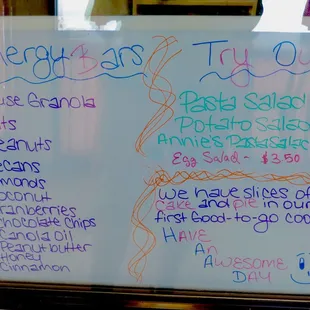 nergy Bars
use Granola
ts
eanuts
ecans
monds
oconut
ranberries
hocolate Chips
anola Oil
eanut butter
Honey
Cinnamon
Try Ou
Pasta Salad
Potato Salad
Annie's Pasta Salad
Egg Salad - $3.50
We have slices of
cake and pie in our
first Good-to-go coo
Have
An
Awesome
Day